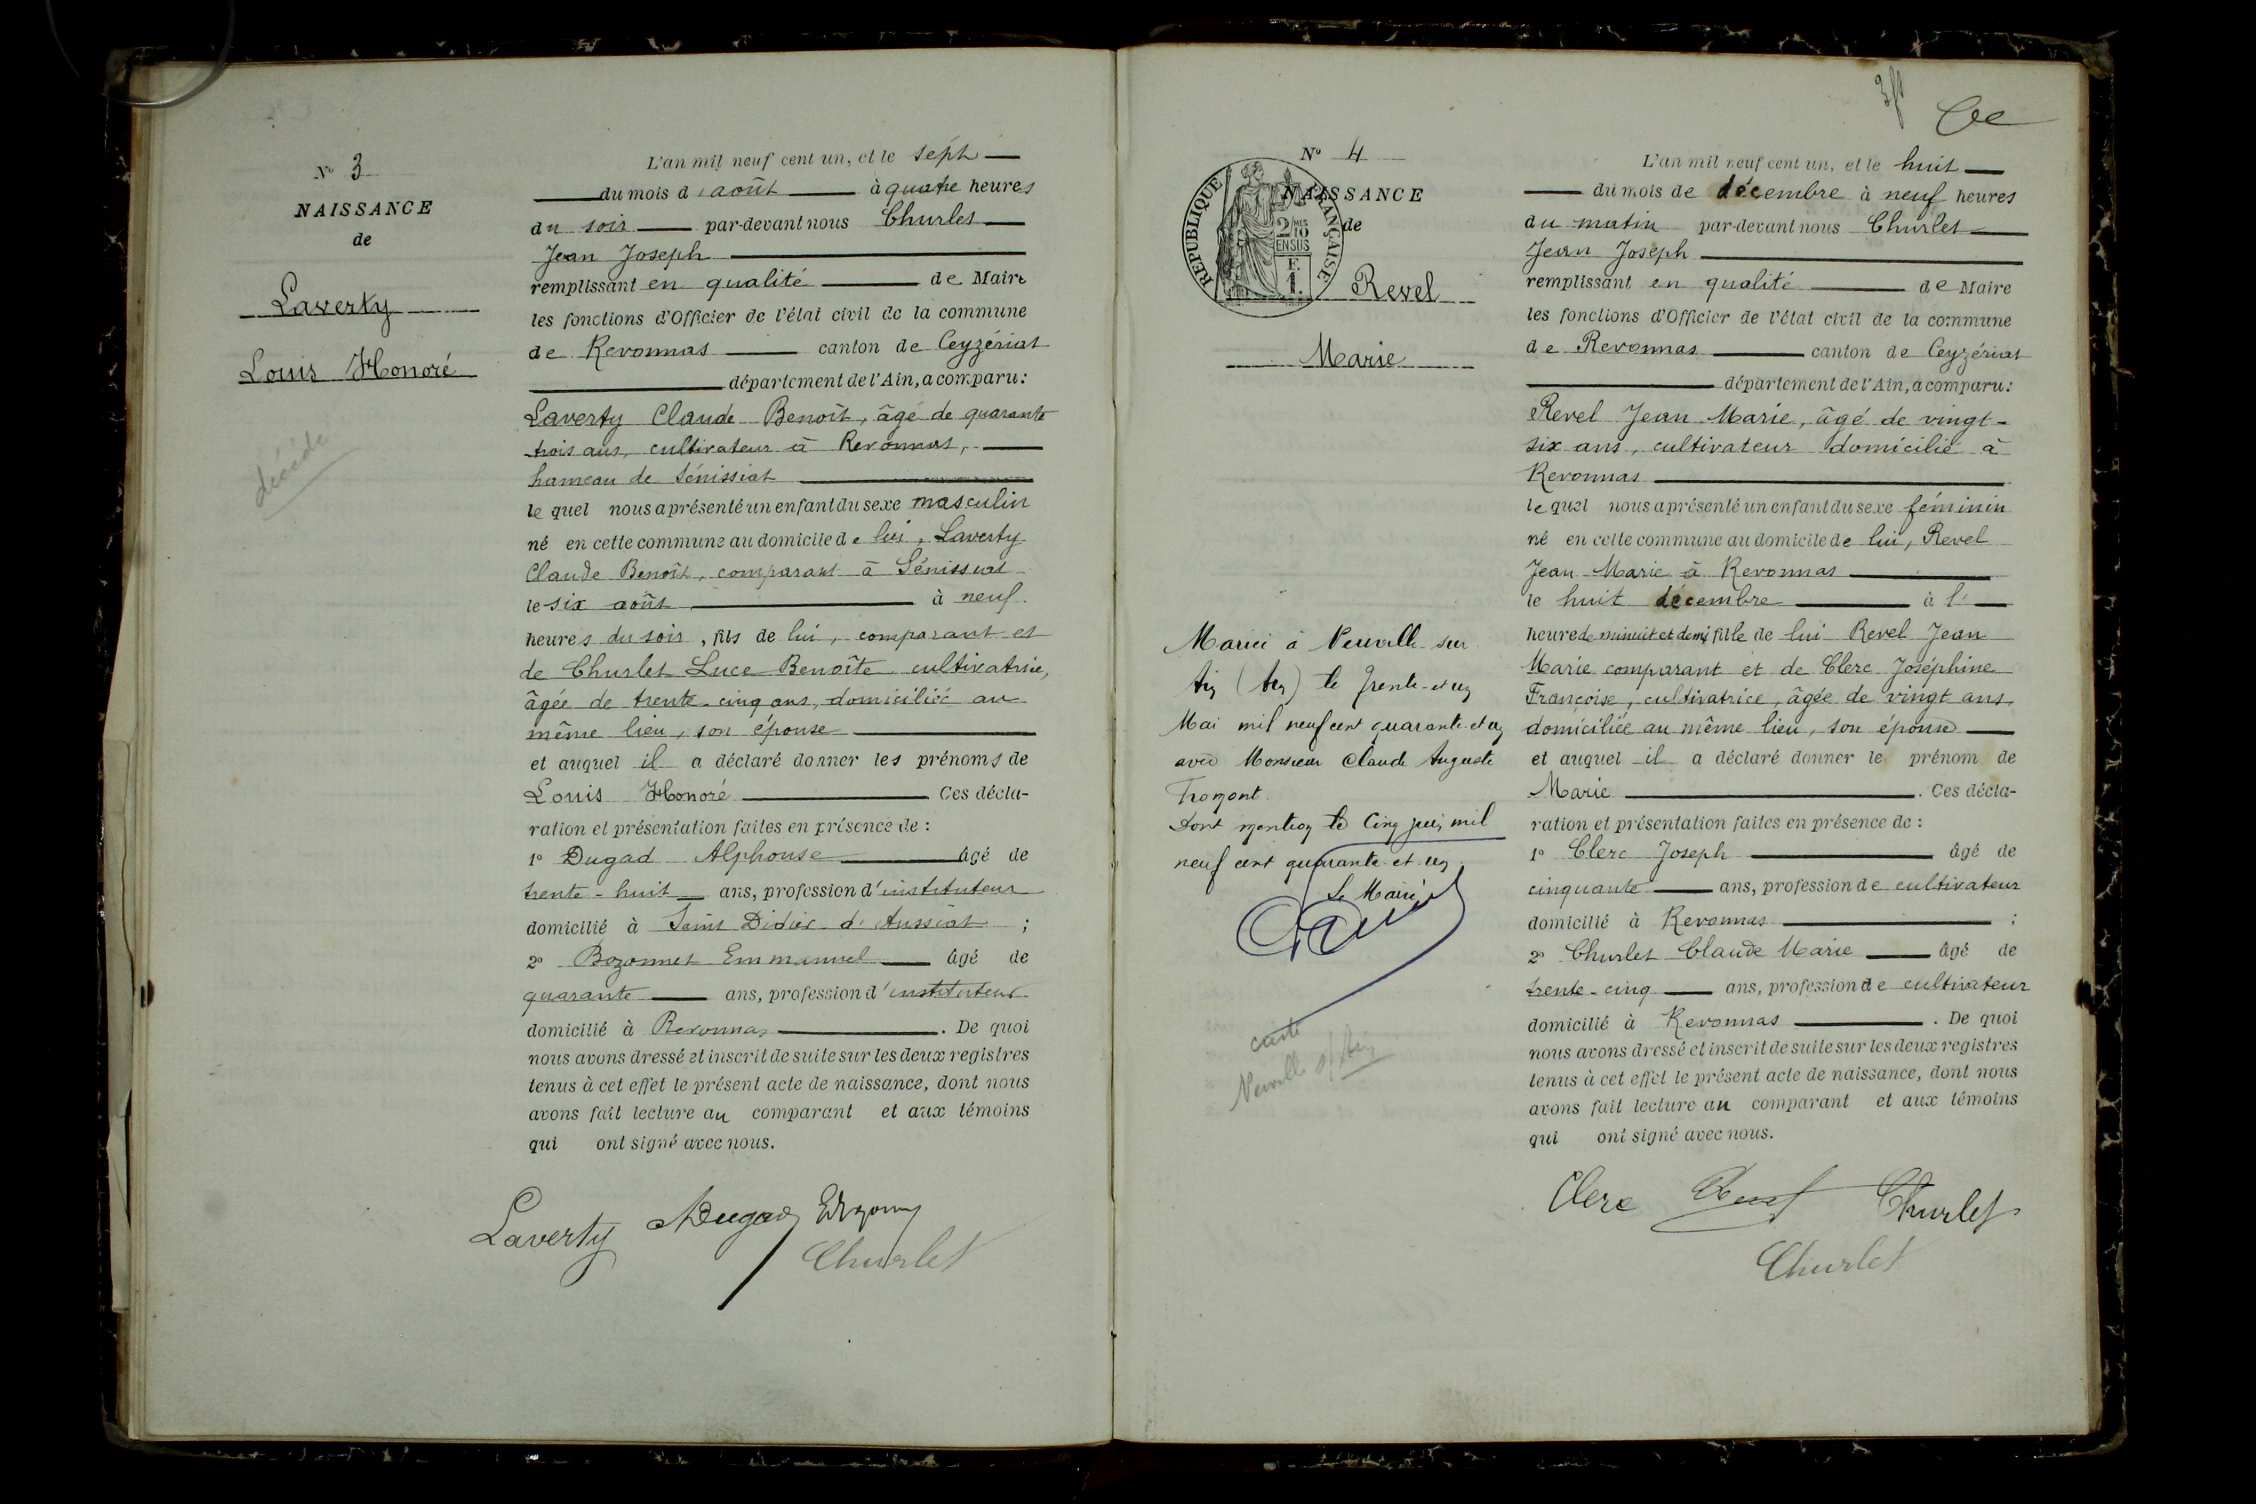 N° 3
NAISSANCE
de
Laverty
Louis Honoré
décédé
L'an mil neuf cent un, et le sept
du mois d'août à quatre heures
du soir par-devant nous Churlet
Jean Joseph
remplissant en qualité de Maire
les fonctions d'Officier de l'état civil de la commune
de Revonnas canton de Ceyzériat
département de l'Ain, a comparu:
Laverty Claude Benoît, âgé de quarante
trois ans, cultivateur à Revonnas,
hameau de Sénissiat
le quel nous a présenté un enfant du sexe masculin
né en cette commune au domicile de lui, Laverty
Claude Benoît, comparant à Sénissiat
le six août à neuf
heures du soir, fils de lui, comparant et
de Churlet Luce Benoîte cultivatrice,
âgée de trente-cinq ans, domiciliée au
même lieu, son épouse
et auquel il a déclaré donner les prénoms de
Louis Honoré Ces décla-
ration et présentation faites en présence de :
1° Dugad Alphonse âgé de
trente-huit ans, profession d'instituteur
domicilié à Saint Didier d'Aussiat ;
2° Bozonnet Emmanuel âgé de
quarante ans, profession d'instituteur
domicilié à Revonnas . De quoi
nous avons dressé et inscrit de suite sur les deux registres
tenus à cet effet le présent acte de naissance, dont nous
avons fait lecture au comparant et aux témoins
qui ont signé avec nous.
Laverty ADugad
Churlet
N° 4
NAISSANCE
de
REPUBLIQUE FRANÇAISE
2/10 EN SUS
F. 1.
Revel
Marie
Mariée à Neuville sur
Ain (Ain) le trente-et-un
Mai mil neuf cent quarante-et-un
avec Monsieur Claude Auguste
Tromont.
Dont mention le Cinq juin mil
neuf cent quarante-et-un.
Le Maire
carte
Neuville s/Ain
L'an mil neuf cent un, et le huit
du mois de décembre à neuf heures
du matin par-devant nous Churlet
Jean Joseph
remplissant en qualité de Maire
les fonctions d'Officier de l'état civil de la commune
de Revonnas canton de Ceyzériat
département de l'Ain, a comparu:
Revel Jean Marie, âgé de vingt-
six ans, cultivateur domicilié à
Revonnas
le quel nous a présenté un enfant du sexe féminin
né en cette commune au domicile de lui, Revel
Jean Marie à Revonnas
le huit décembre à l'
heure de minuit et demi fille de lui Revel Jean
Marie comparant et de Clerc Joséphine
Françoise, cultivatrice, âgée de vingt ans,
domiciliée au même lieu, son épouse
et auquel il a déclaré donner le prénom de
Marie . Ces décla-
ration et présentation faites en présence de :
1° Clerc Joseph âgé de
cinquante ans, profession de cultivateur
domicilié à Revonnas ;
2° Churlet Claude Marie âgé de
trente-cinq ans, profession de cultivateur
domicilié à Revonnas . De quoi
nous avons dressé et inscrit de suite sur les deux registres
tenus à cet effet le présent acte de naissance, dont nous
avons fait lecture au comparant et aux témoins
qui ont signé avec nous.
Clerc Revel Churlet
Churlet